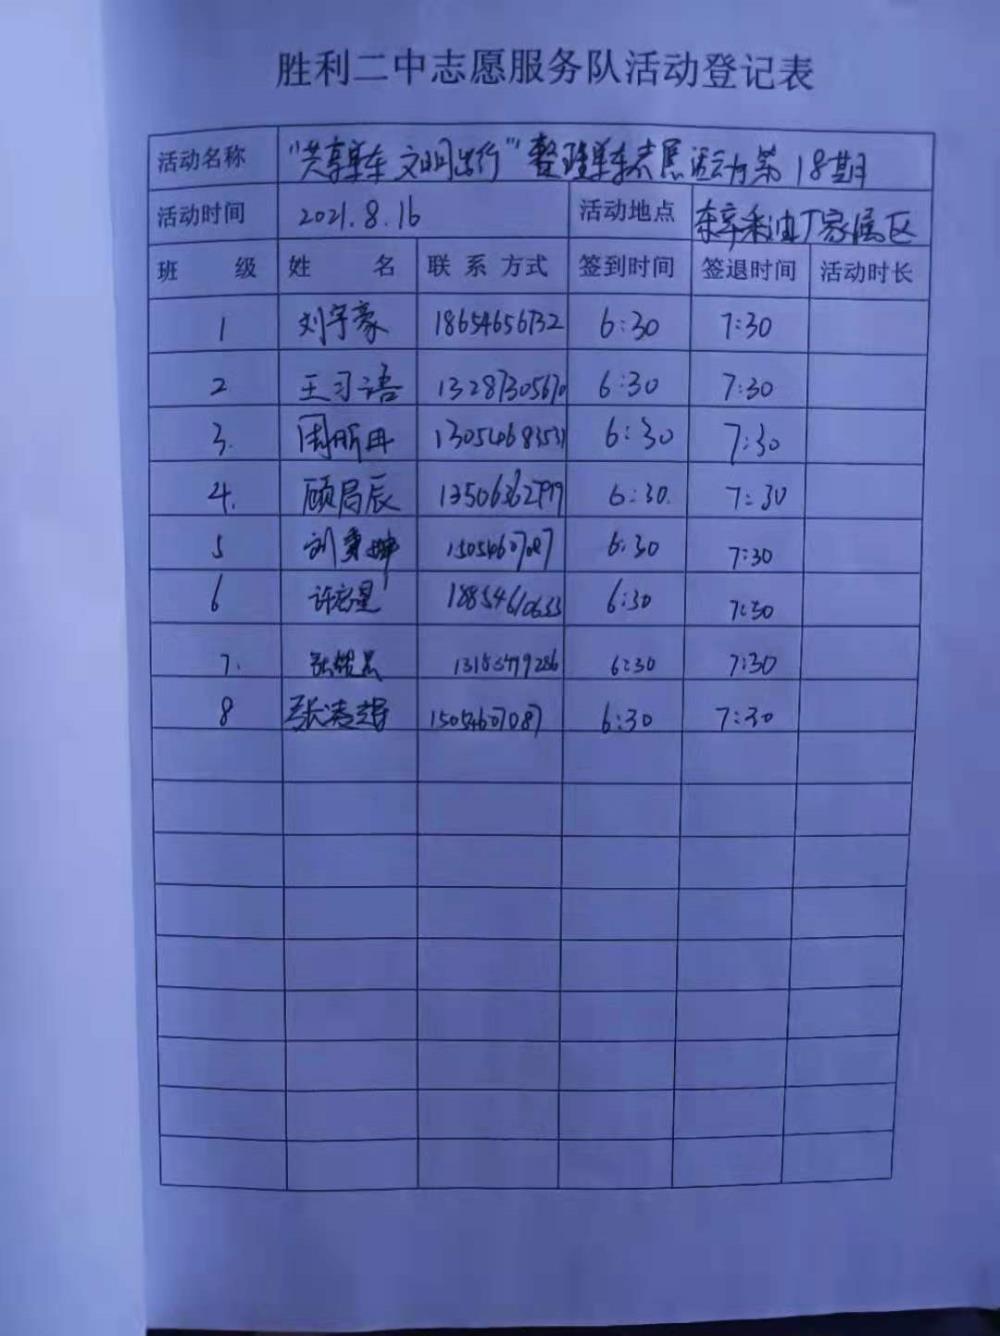 胜利二中志愿服务队活动登记表
活动名称 “共享单车 文明出行”整理单车志愿活动第18期
活动时间 2021.8.16 活动地点 东辛采油厂家属区
班 级 姓 名 联 系 方式 签到时间 签退时间 活动时长
1 刘宇豪 18654656732 6:30 7:30
2 王习语 13287305670 6:30 7:30
3. 周昕冉 13054683537 6:30 7:30
4. 顾局辰 6:30. 7:30
5 刘 15054607087 6:30 7:30
6 许 18854610633 6:30 7:30
7. 张 6:30 7:30
8 张 15054607087 6:30 7:30